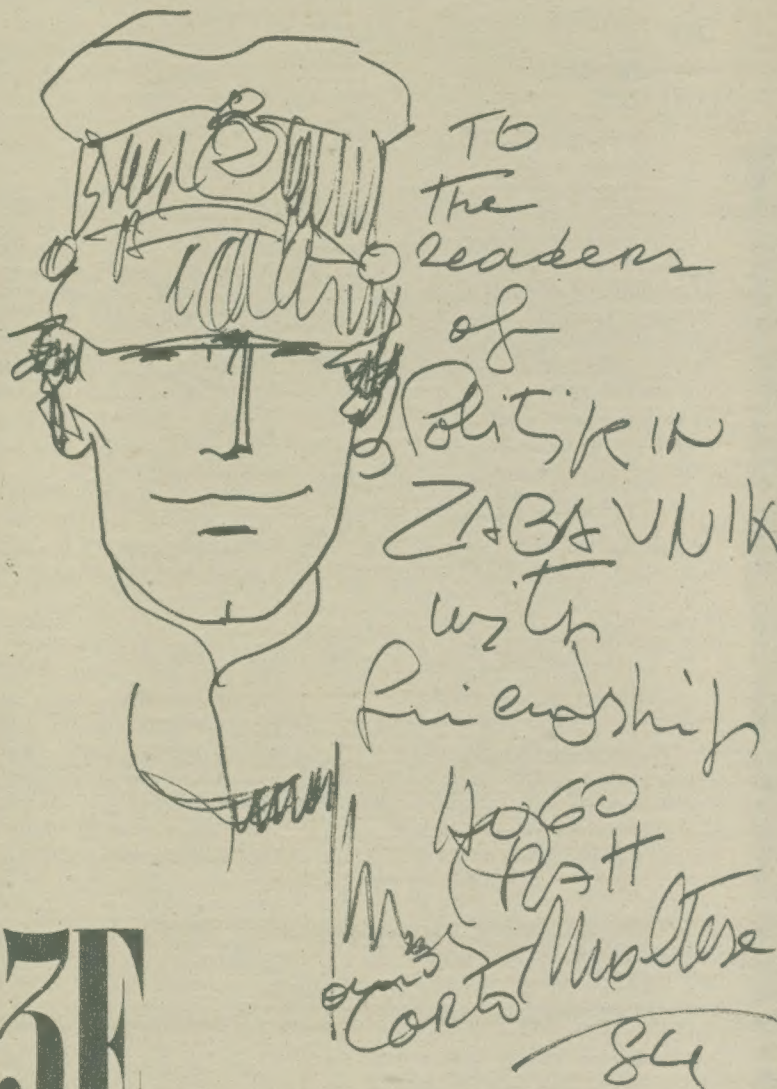 TO
the
readers
of
Politikin
ZABAVNIK
with
friendship
HUGO
PRATT
Corto Maltese
84
ЗЕ